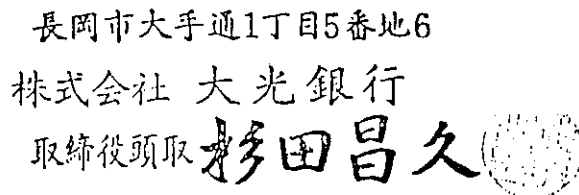 長岡市大手通1丁目5番地6
株式会社 大光銀行
取締役頭取 杉田昌久